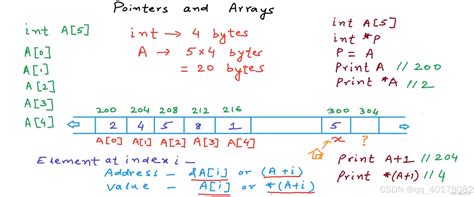 Pointers and Arrays
int A[5]
A[0]
A[1]
A[2]
A[3]
A[4]
int → 4 bytes
A → 5x4 bytes
= 20 bytes
int A[5]
int *P
P = A
Print A // 200
Print *A // 2
200 204 208 212 216 300 304
2 4 5 8 1 5
A[0] A[1] A[2] A[3] A[4] x ?
Element at index i -
Address - &A[i] or (A+i)
Value - A[i] or *(A+i)
Print A+1 // 204
Print *(A+1) // 4
CSDN @qq_40178082